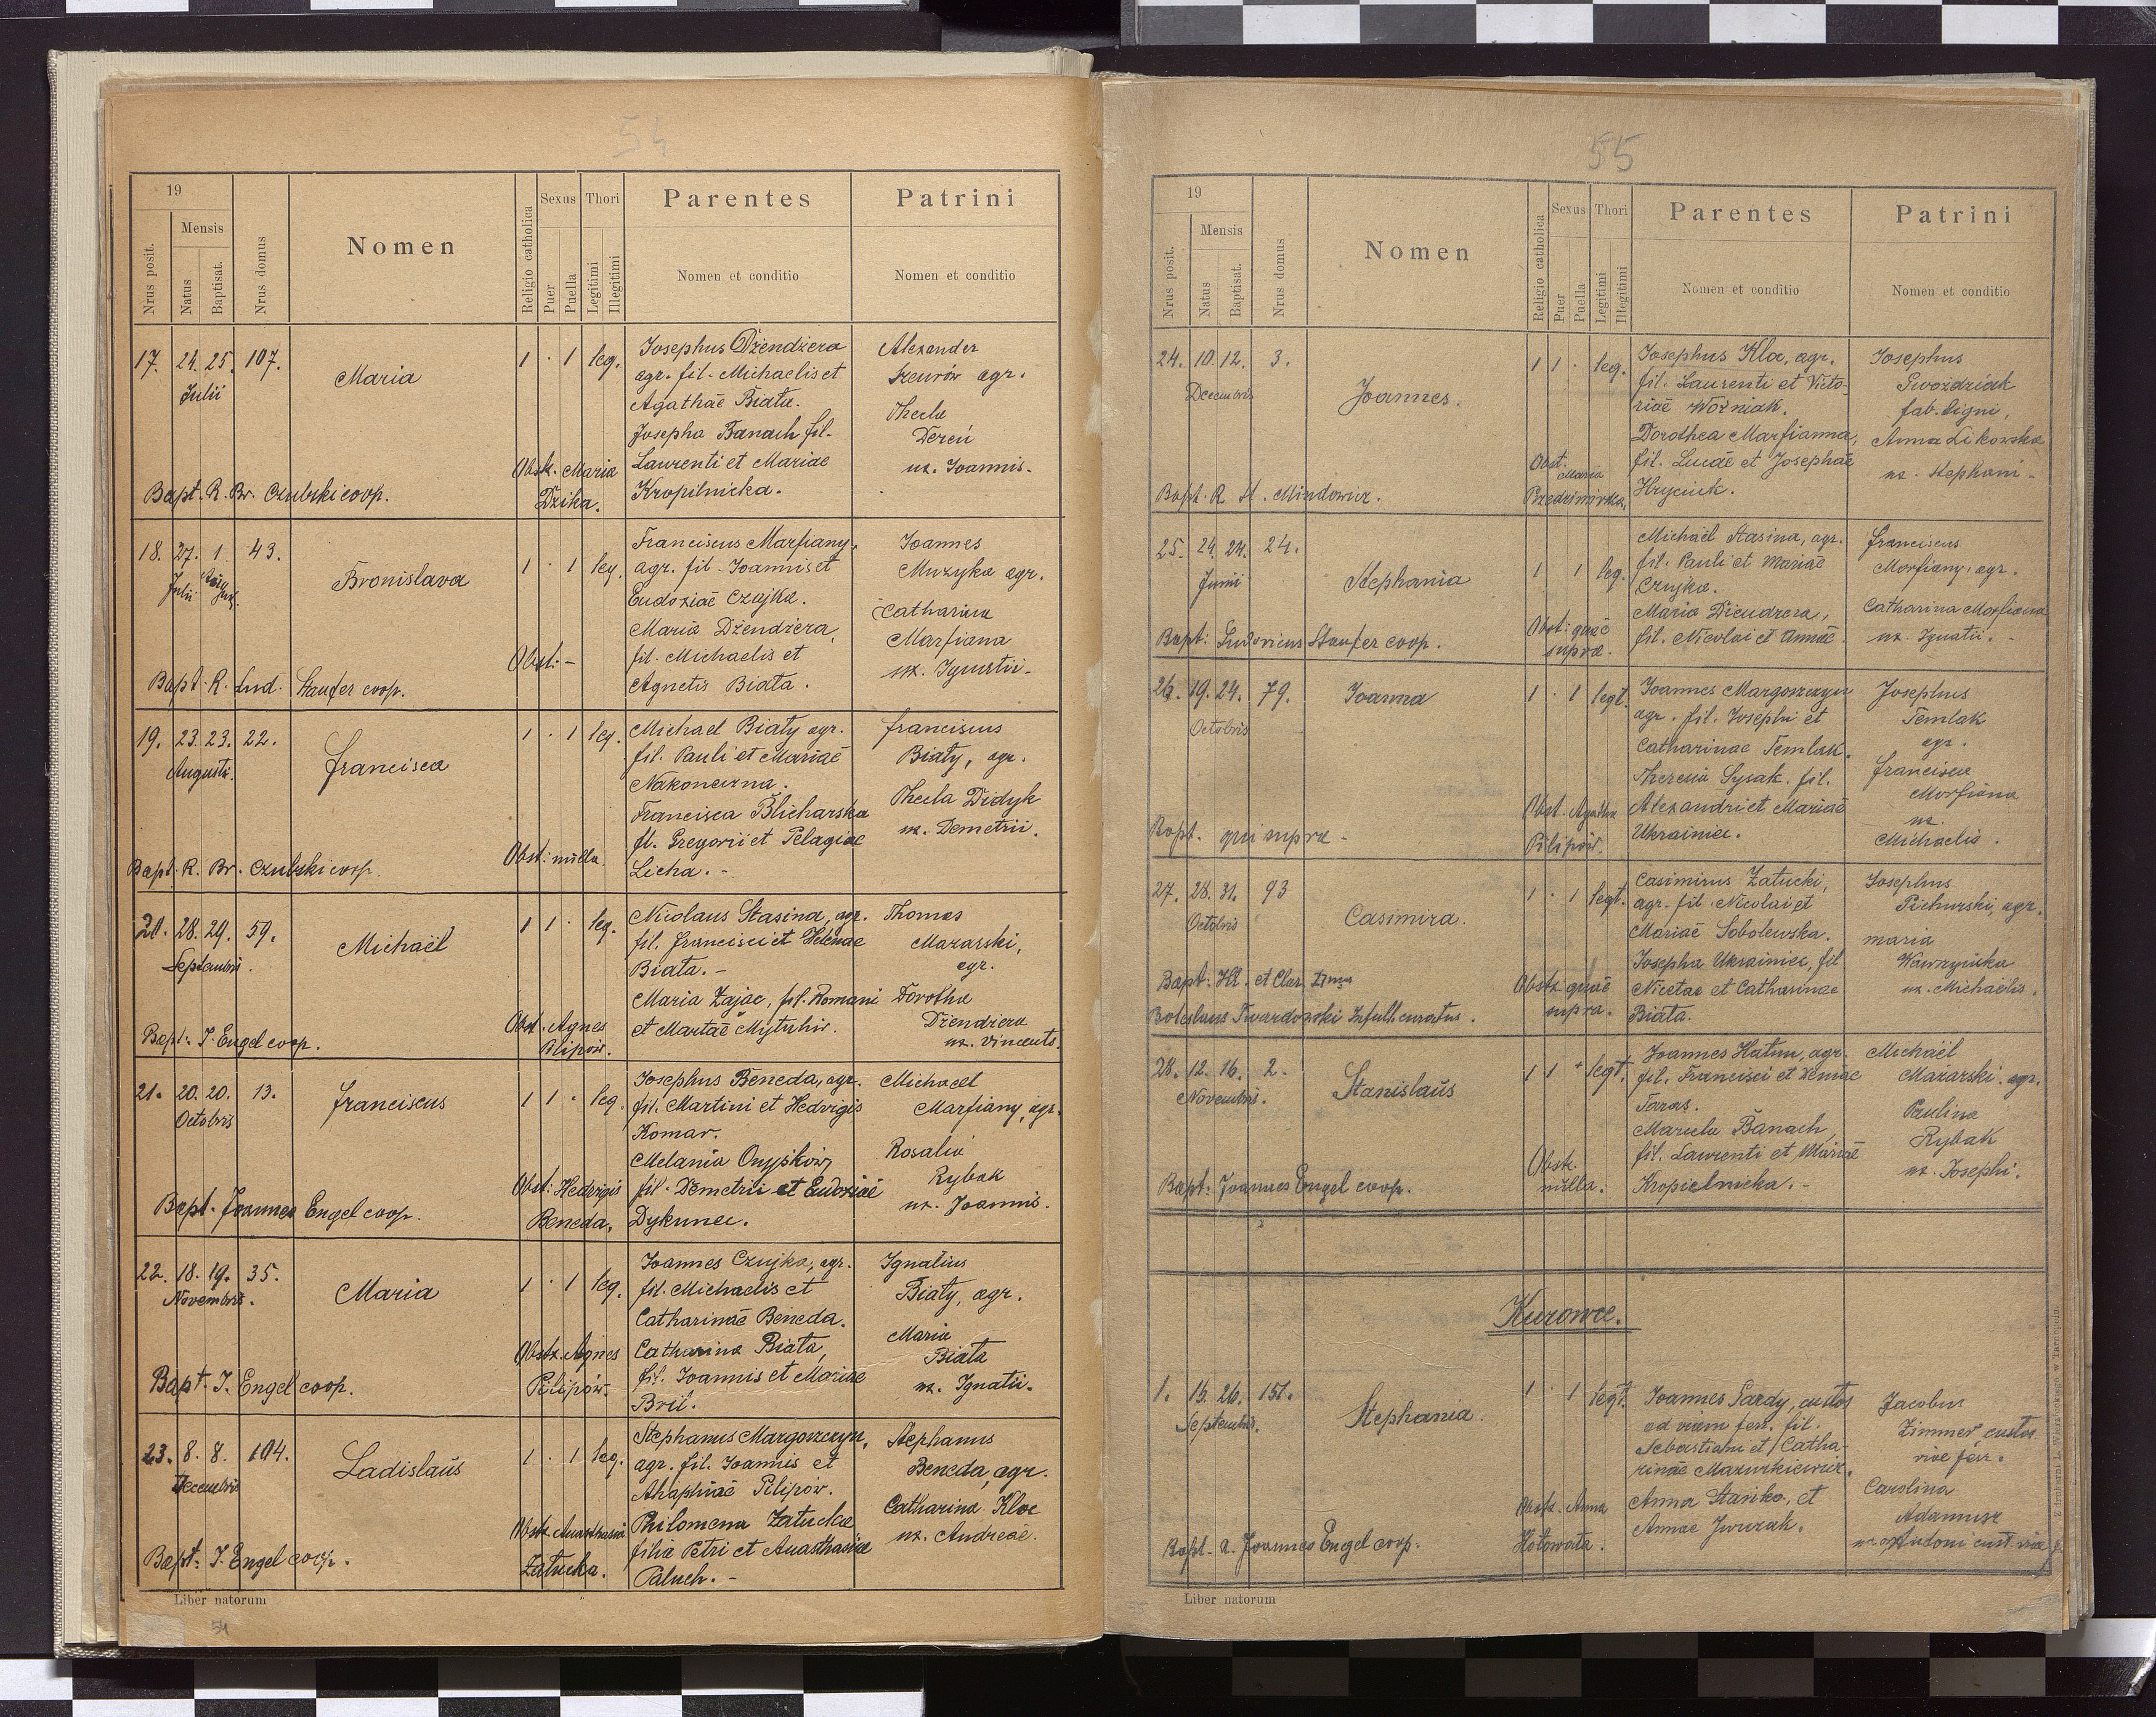 54
19
Nrus posit.
Mensis
Natus
Baptisat.
Nrus domus
Nomen
Religio catholica
Sexus
Puer
Puella
Thori
Legitimi
Illegitimi
Parentes
Nomen et conditio
Patrini
Nomen et conditio
17. 24. 25. 107.
Julii
Maria
1 · 1 leg.
Josephus Dżendżera
agr. fil. Michaelis et
Agathaē Biała.
Josepha Banach fil.
Laurenti et Mariae
Kropilnicka.
Alexander
agr.
Thecla
Dereń
ux. Joannis.
Obst. Maria
Dzika.
Bapt. R. Br. Czubski coop.
18. 27. 1. 43.
Julii
Bronislava
1 · 1 leg.
Franciscus Marfiany,
agr. fil. Joannis et
Eudoxiaē Czajka.
Maria Dżendżera,
fil. Michaelis et
Agnetis Biała.
Joannes
Muzyka agr.
Catharina
Marfiana
ux.
Obst: -
Bapt. R. Lud. Staufer coop.
19. 23. 23. 22.
Augusti.
Francisca
1 · 1 leg.
Michael Biały agr.
fil. Pauli et Mariaē
Nakoneczna.
Francisca Blicharska
fil. Gregorii et Pelagiae
Licha. -
Franciscus
Biały, agr.
Thecla Didyk
ux. Demetrii.
Obst: nulla
Bapt. R. Br. Czubski coop.
20. 28. 29. 59.
Septembris.
Michaël
1 1 · leg.
Nicolaus Stasina, agr.
fil. Francisci et Helenae
Biała. -
Maria Zając, fil. Romani
et Martaē
Thomas
Mazarski,
agr.
Dorothea
Dżendżera
ux. Vincenti.
Obst. Agnes
Pilipów.
Bapt: J. Engel coop.
21. 20. 20. 13.
Octobris
Franciscus
1 1 · leg.
Josephus Beneda, agr.
fil. Martini et Hedvigis
Komar.
Melania Onyśków,
fil. Demetrii et Eudoxiaē
Dykunec.
Michael
Marfiany, agr.
Rosalia
Rybak
ux. Joannis.
Obst: Hedvigis
Beneda,
Bapt. Joannes Engel coop.
22. 18. 19. 35.
Novembris.
Maria
1 · 1 leg.
Joannes Czujko, agr.
fil. Michaelis et
Catharinaē Beneda.
Catharina Biała,
fil. Joannis et Mariae
Bril.
Ignatius
Biały, agr.
Maria
Biała
ux. Ignatii.
Obstz. Agnes
Pilipów.
Bapt. J. Engel coop.
23. 8. 8. 104.
Decembris
Ladislaūs
1 · 1 leg.
Stephanus Margoszczyn,
agr. fil. Joannis et
Ahaphiaē Pilipów.
Philomena Załucka
filia Petri et Anasthasiae
Paluch. -
Stephanus
Beneda, agr.
Catharina Kloc
ux. Andreaē.
Obstz. Anasthasia
Załucka.
Bapt: J. Engel coop.
Liber natorum
54
55
19
Nrus posit.
Mensis
Natus
Baptisat.
Nrus domus
Nomen
Religio catholica
Sexus
Puer
Puella
Thori
Legitimi
Illegitimi
Parentes
Nomen et conditio
Patrini
Nomen et conditio
24. 10. 12. 3.
Decembris
Joannes.
1 1 · leg.
Josephus Kla, agr.
fil. Laurenti et Victo-
riaē Woźniak.
Dorothea Marfianna,
fil. Lucaē et Josephaē
Hryciuk.
Josephus
Gwoździak
fab. ligni,
Anna Likowska
ux. Stephani -
Obst.
Maria
Bapt. R. St. Mindowicz.
25. 24. 24. 24.
Junii
Stephania
1 1 leg.
Michaël Stasina, agr.
fil. Pauli et Mariaē
Czujka.
Maria Dzendzera,
fil. Nicolai et Annaē.
Franciscus
Marfiany, agr.
Catharina Marfiana
ux. Ignatii. -
Obst: quaē
supra.
Bapt: Ludovicus Staufer coop.
26. 19. 24. 79.
Octobris
Joanna
1 · 1 legt.
Joannes Margoszczyn
agr. fil. Josephi et
Catharinae Temlak.
Theresia Sysak. fil.
Alexandri et Mariaē
Ukrainiec.
Josephus
Temlak
agr.
Francisca
Marfiana
ux.
Michaelis.
Obst. Agatha
Pilipów.
Bapt. qui supra -
27. 28. 31. 93
Octobris
Casimira.
1 · 1 legt.
Casimirus Załucki,
agr. fil. Nicolai et
Mariaē Sobolewska.
Josepha Ukrainiec, fil
Nicetae et Catharinae
Biała.
Josephus
Pichurski, agr.
Maria
Wawrzynicka
ux. Michaelis.
Obstz. quaē
supra.
Bapt: Ill. et Clar.
Boleslaus Twardowski
28. 12. 16. 2.
Novembris.
Stanislaūs
1 1 · legt.
Joannes Hatun, agr.
fil. Francisci et Xeniae
Taras.
Marcela Banach,
fil. Laurenti et Mariaē
Kropielnicka. -
Michaēl
Mazarski. agr.
Paulina
Rybak
ux. Josephi.
Obstz.
nūlla.
Bapt: Joannes Engel coop.
Kurowce.
1. 15. 26. 151.
Septembris.
Stephania.
1 · 1 legt.
Joannes Gardy, custos
ad viam ferr. fil.
Sebastiani et Catha-
rinaē Mazurkiewicz.
Anna Stańko, et
Annae
Jacobus
Zimmer custos
viae ferr.
Carolina
Adamusz
ux. Antoni cust. viae f.
Obstz. Anna
Hołowata.
Bapt. R. Joannes Engel coop.
Liber natorum
55